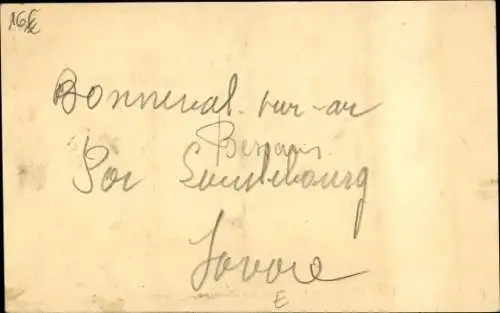 Bonneval-sur-ar
Bessans
Par Lanslebourg
Savoie
E